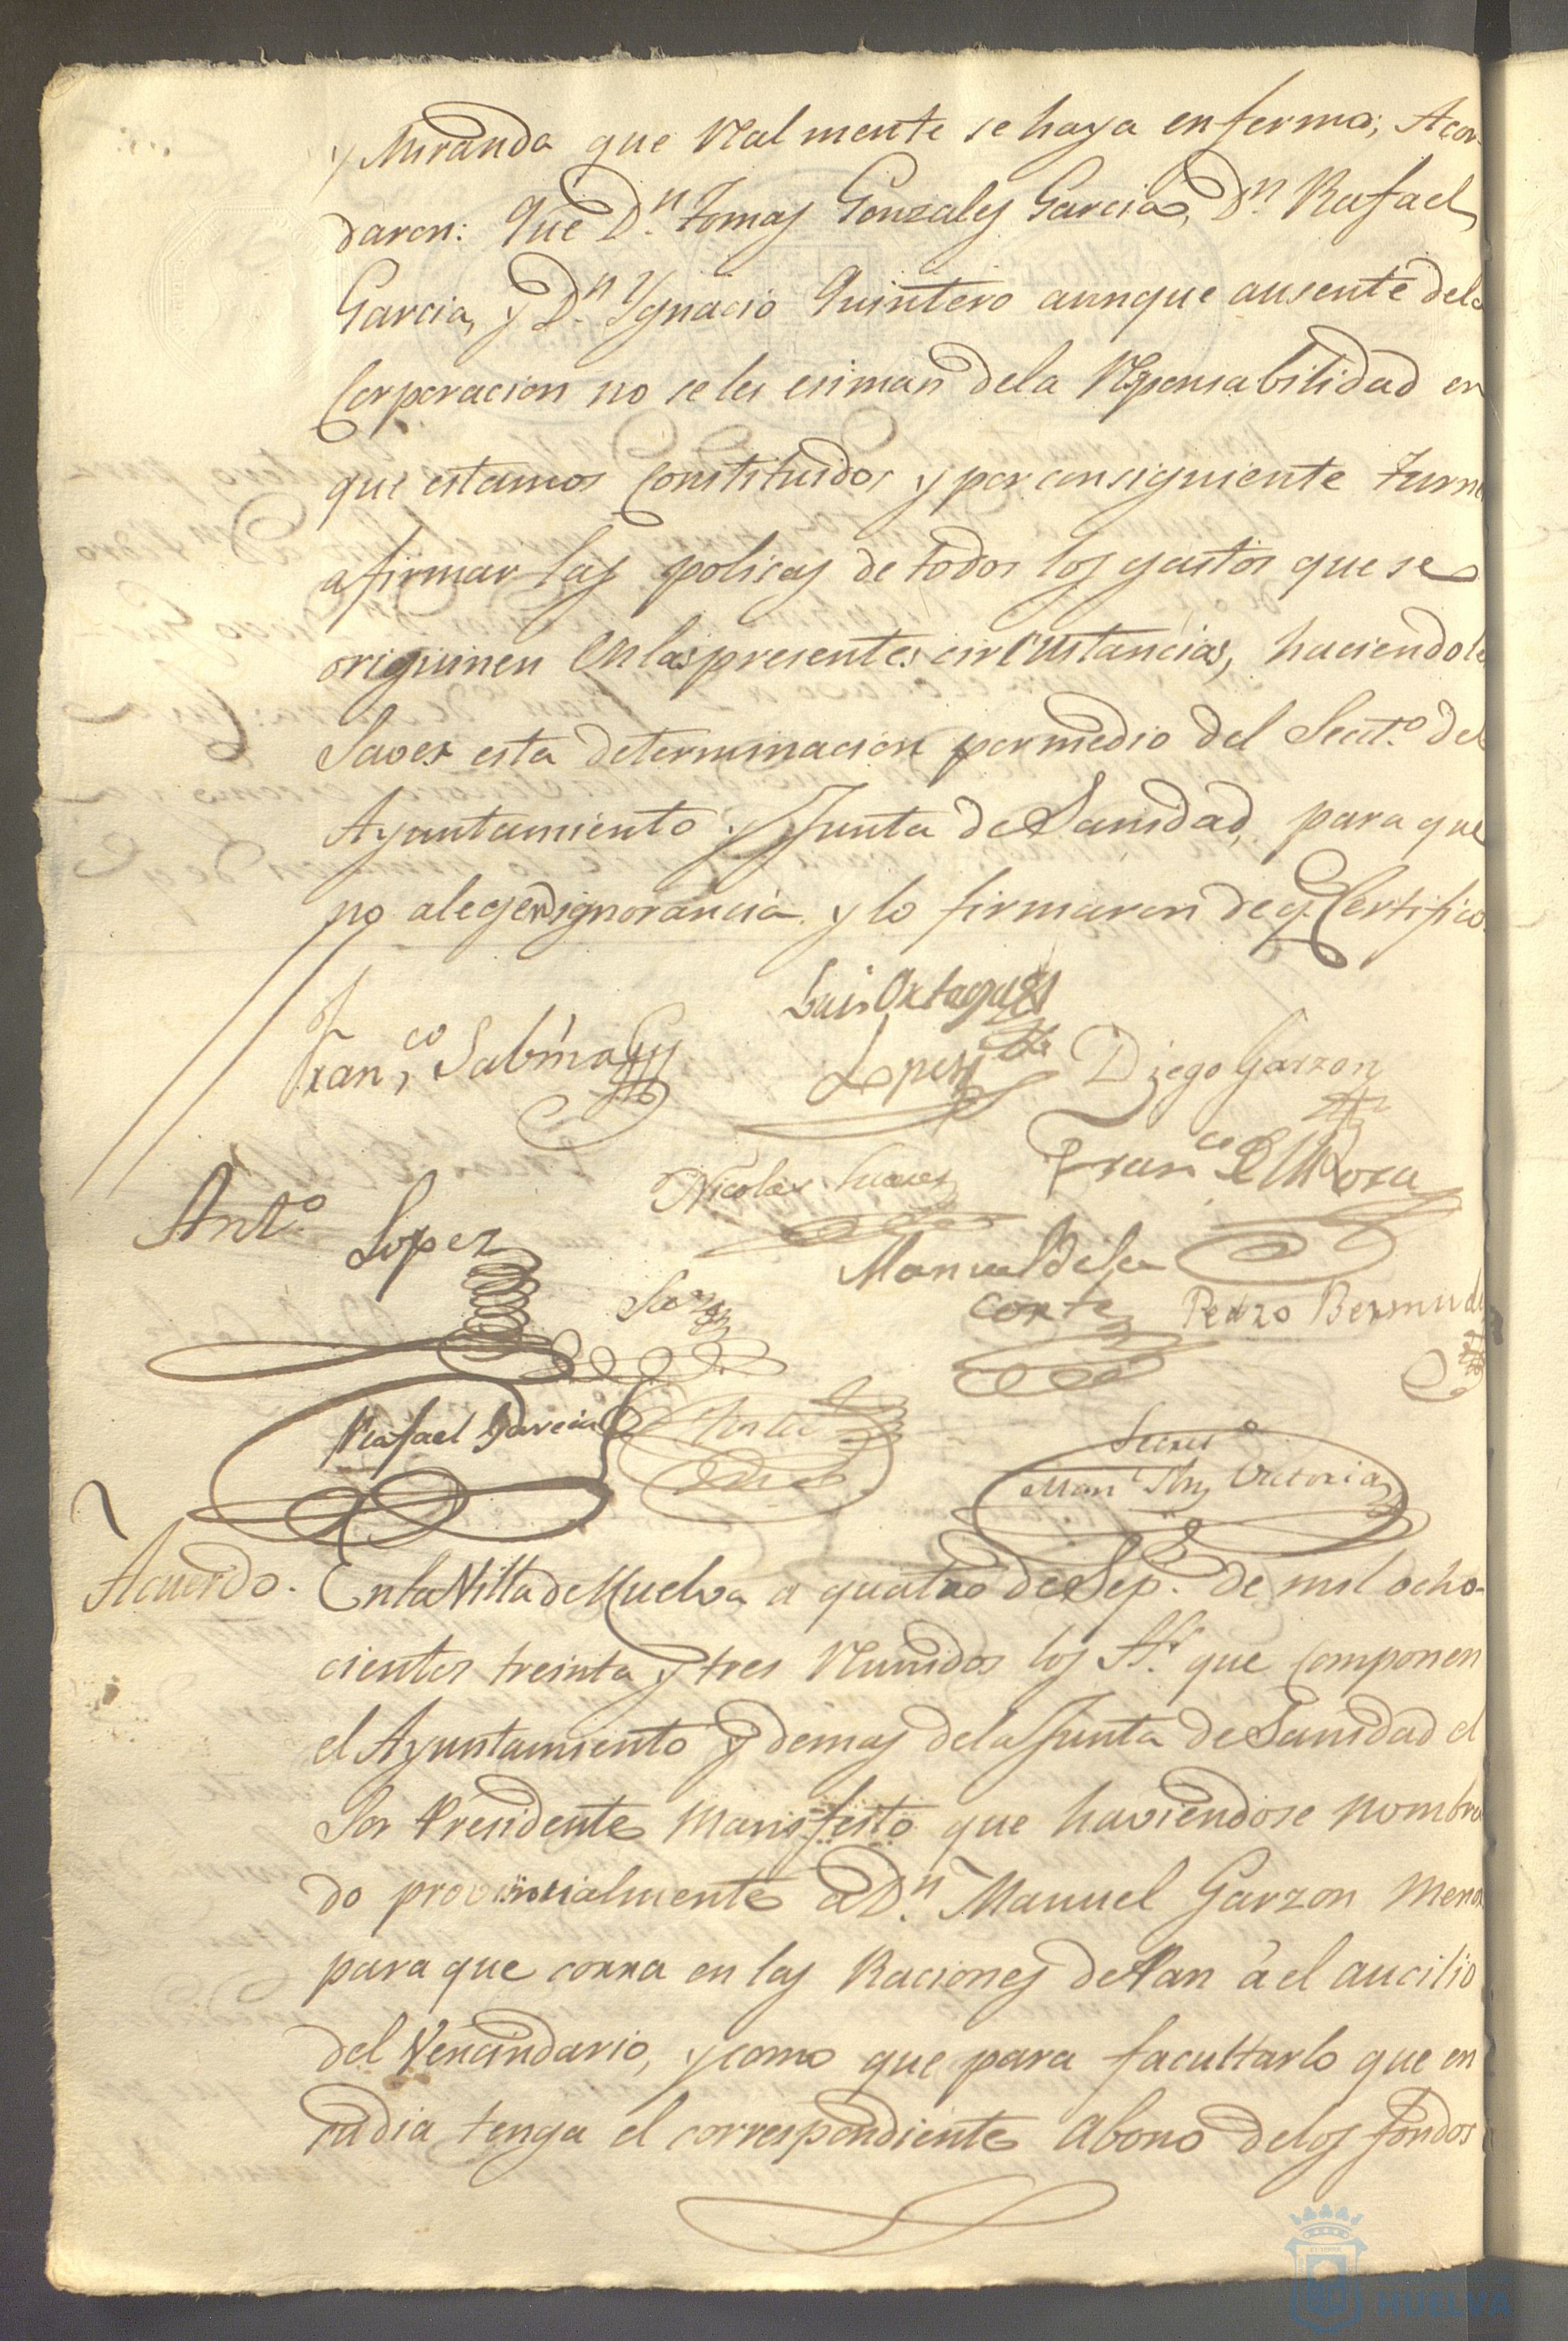 y Miranda que Realmente se haya enfermo; Acor-
daron: Que Dn. Tomas Gonzales Garcia, Dn. Rafael
Garcia, y Dn. Ygnacio Quintero aunque ausente dela
Corporacion no se les esiman dela Responsabilidad en
que estamos Constituidos y por consiguiente turne
a firmar las polisas de todos los gastos que se
originen en las presentes circustancias, haciendole
Saver esta determinacion por medio del Secrto. del
Ayuntamiento y Junta de Sanidad, para que
no alegen ignorancia y lo firmaron de q. Certifico.
Luis Ortega
Franco. Sabina
Lopez
Diego Garzon
Franco. de Mora
Nicolas
Anto. Lopez
Manuel de la
Corte
Pedro Bermud
Rafael Garcia
Secreto
Man Victoria
Acuerdo.
En la Villa de Huelva a quatro de Sep. de mil ocho-
cientos treinta y tres Reunidos los SSr. que Componen
el Ayuntamiento y demas dela Junta de Sanidad el
Sor Presidente Manifesto que haviendose nombra
do provicionalmente a Dn. Manuel Garzon Mena
para que corra en las Raciones de Pan à el aucilio
del Vecindario, y como que para facultarlo que en
cadia tenga el correspondiente Abono delos fondos
HUELVA